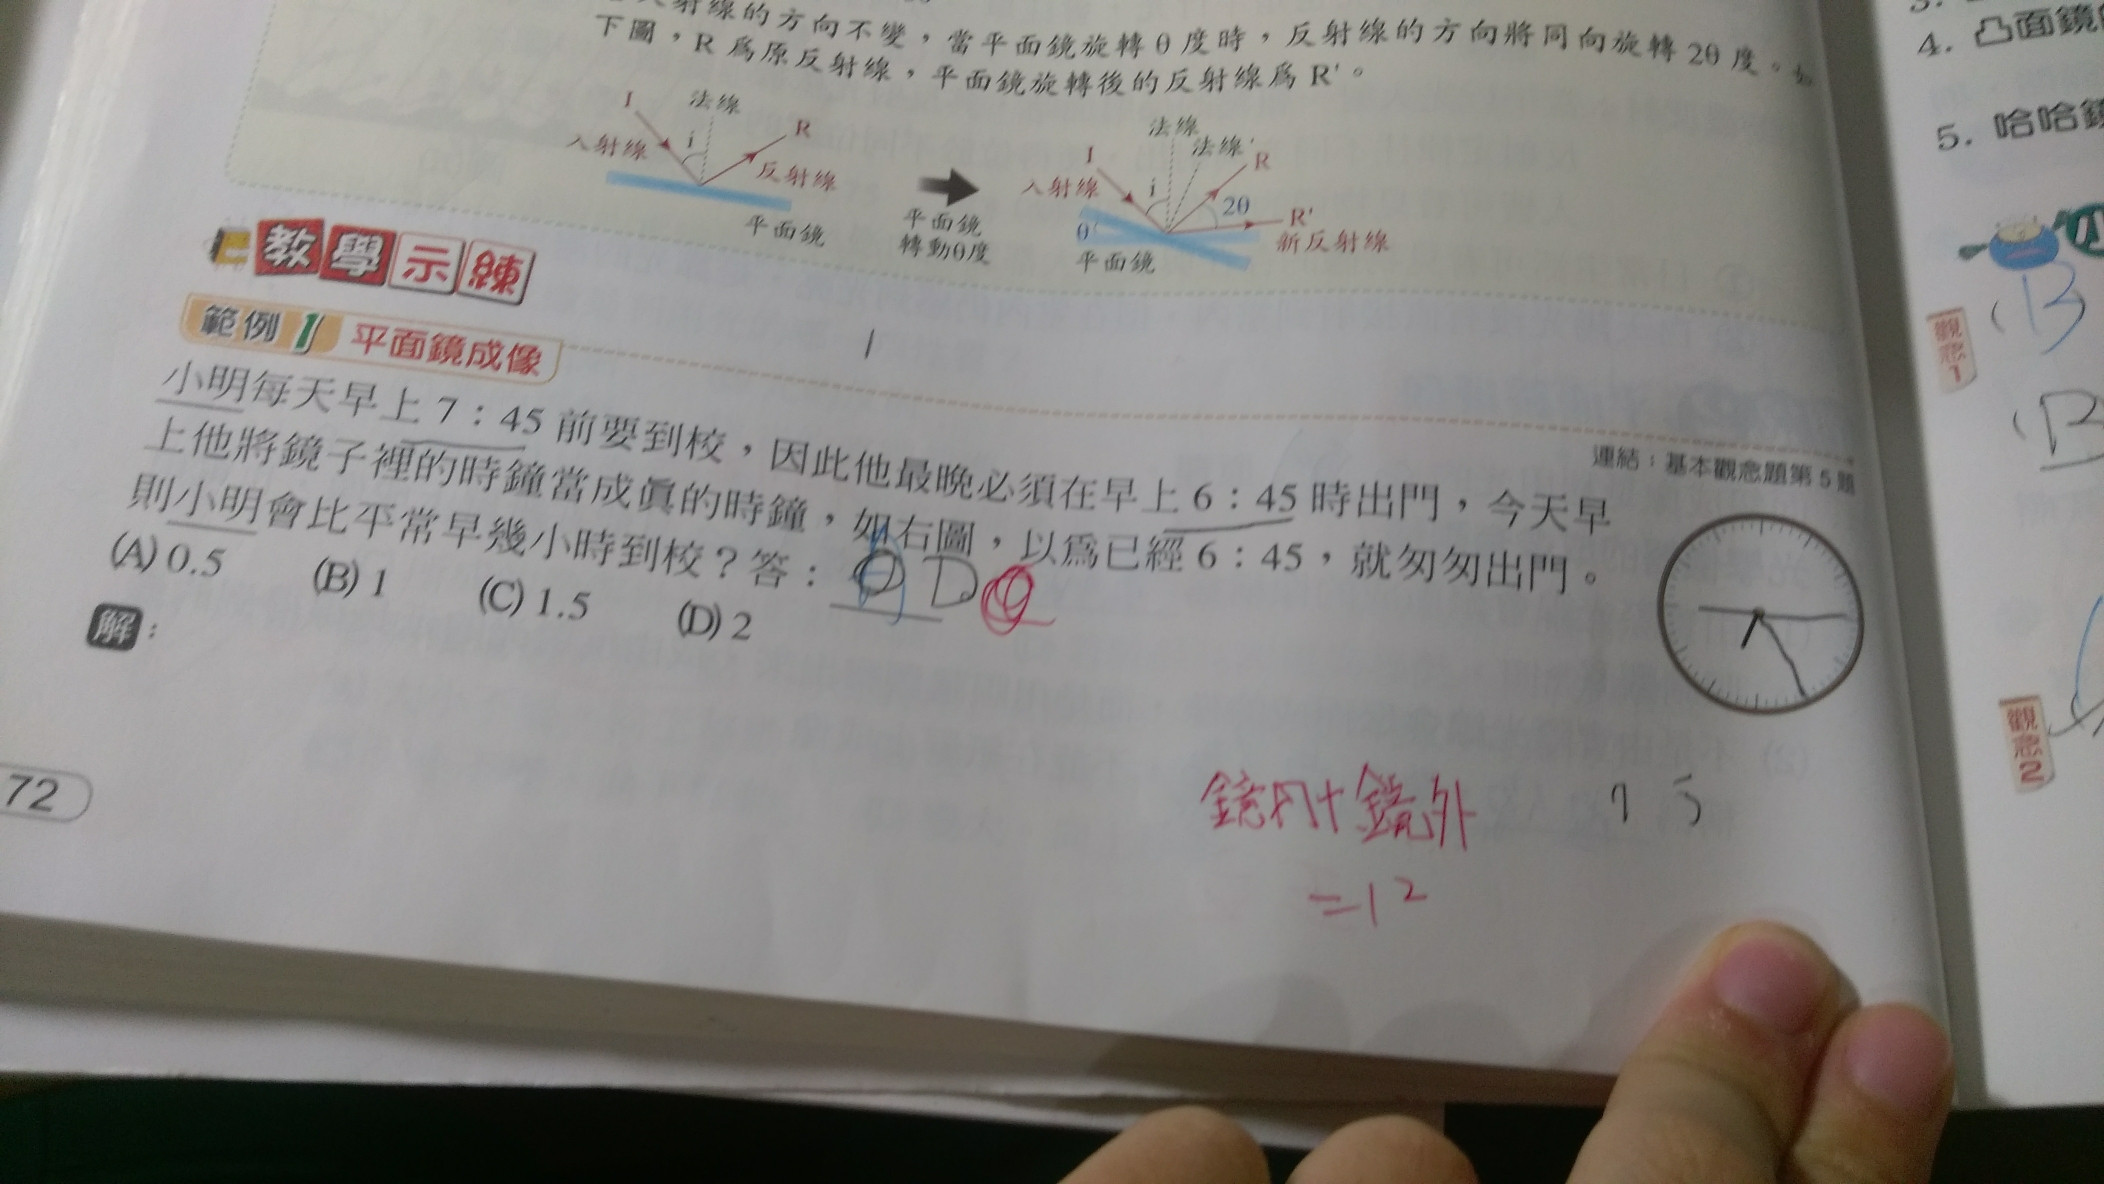 射線的方向不變，當平面鏡旋轉θ度時，反射線的方向將同向旋轉2θ度。如
下圖，R為原反射線，平面鏡旋轉後的反射線為R'。
I 法線 R
入射線 i 反射線
平面鏡
平面鏡
轉動θ度
法線
I 法線' R
入射線 i 2θ R'
θ 新反射線
平面鏡
教學示練
範例1 平面鏡成像
連結：基本觀念題第5題
小明每天早上7：45前要到校，因此他最晚必須在早上6：45時出門，今天早
上他將鏡子裡的時鐘當成真的時鐘，如右圖，以為已經6：45，就匆匆出門。
則小明會比平常早幾小時到校？答： D
(A) 0.5 (B) 1 (C) 1.5 (D) 2
解：
鏡內+鏡外
=12
7 5
72
4. 凸面鏡
5. 哈哈鏡
小
觀念1
(B
(B
觀念2